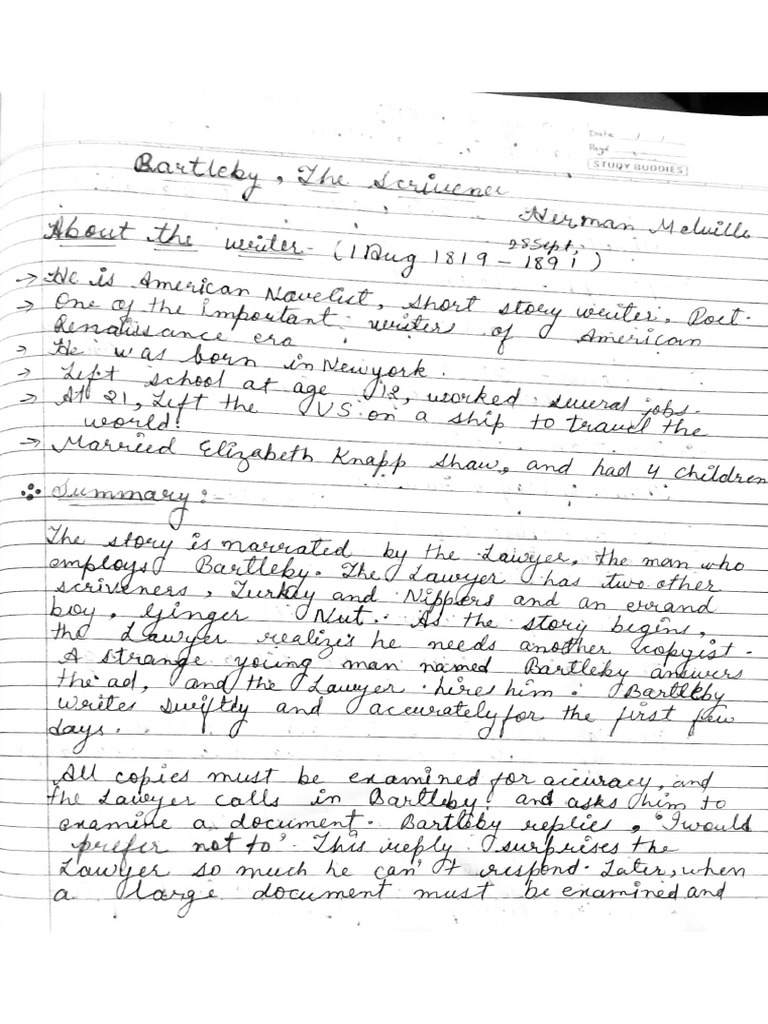 Date / /
Page
STUDY BUDDIES
Bartleby, The Scrivener
Herman Melville
About the writer - (1 Aug 1819 - 28 Sept. 1891)
→ He is American Novelist, short story writer, Poet.
→ One of the important writers of American
Renaissance era
→ He was born in Newyork.
→ Left school at age 12, worked several jobs.
→ At 21, Left the US on a ship to travel the
world.
→ Married Elizabeth Knapp Shaw, and had 4 children
Summary :-
The story is narrated by the Lawyer, the man who
employs Bartleby. The Lawyer has two other
scriveners, Turkey and Nippers and an errand
boy, Ginger Nut. As the story begins,
the Lawyer realizes he needs another copyist.
A strange young man named Bartleby answers
the ad, and the Lawyer hires him. Bartleby
writes swiftly and accurately for the first few
days.
All copies must be examined for accuracy, and
the Lawyer calls in Bartleby and asks him to
examine a document. Bartleby replies, 'I would
prefer not to'. This reply surprises the
Lawyer so much he can't respond. Later, when
a large document must be examined and